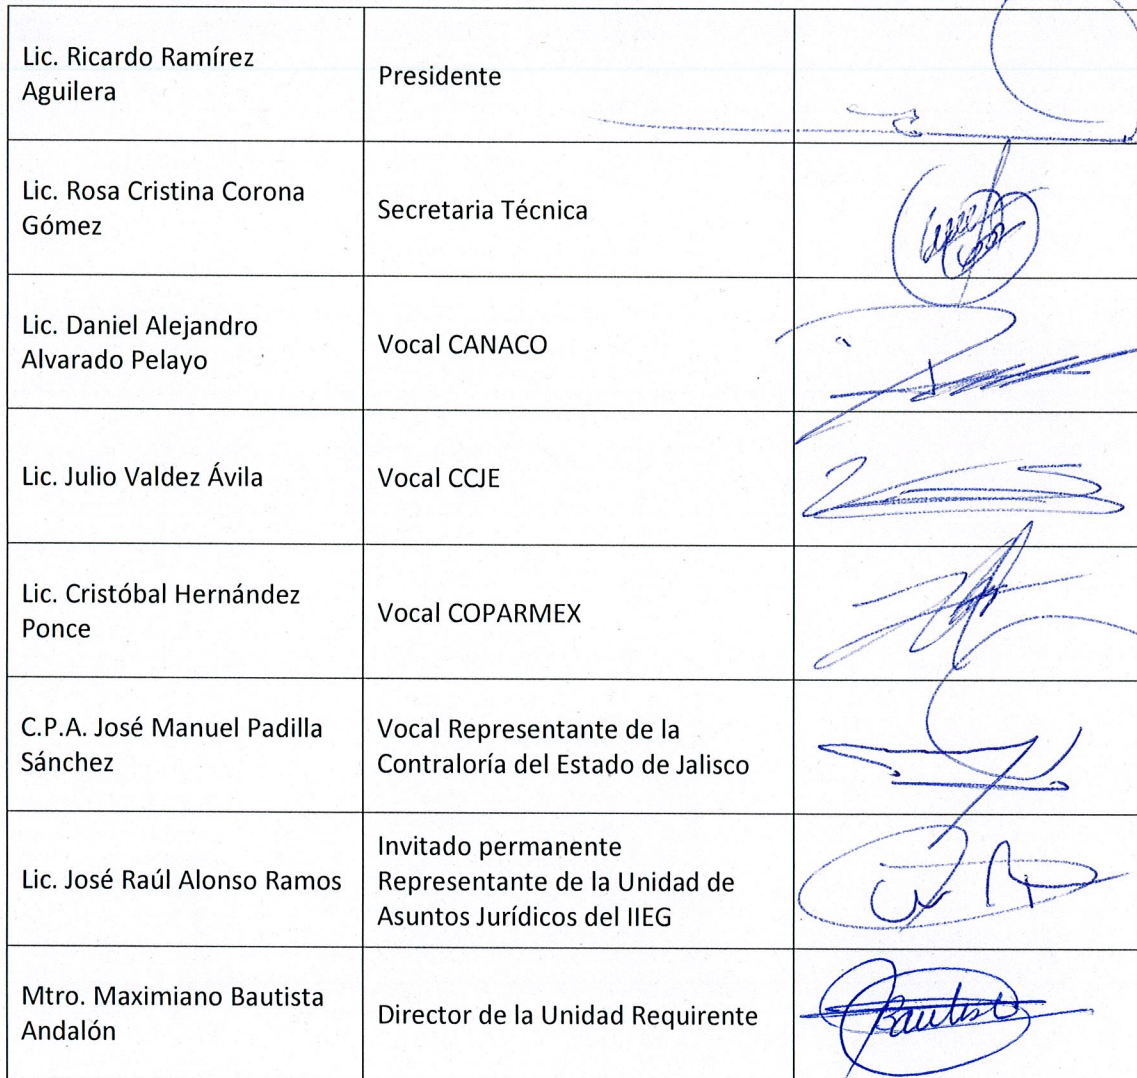 Lic. Ricardo Ramírez
Aguilera
Presidente
Lic. Rosa Cristina Corona
Gómez
Secretaria Técnica
Lic. Daniel Alejandro
Alvarado Pelayo
Vocal CANACO
Lic. Julio Valdez Ávila
Vocal CCJE
Lic. Cristóbal Hernández
Ponce
Vocal COPARMEX
C.P.A. José Manuel Padilla
Sánchez
Vocal Representante de la
Contraloría del Estado de Jalisco
Lic. José Raúl Alonso Ramos
Invitado permanente
Representante de la Unidad de
Asuntos Jurídicos del IIEG
Mtro. Maximiano Bautista
Andalón
Director de la Unidad Requirente
Bautista